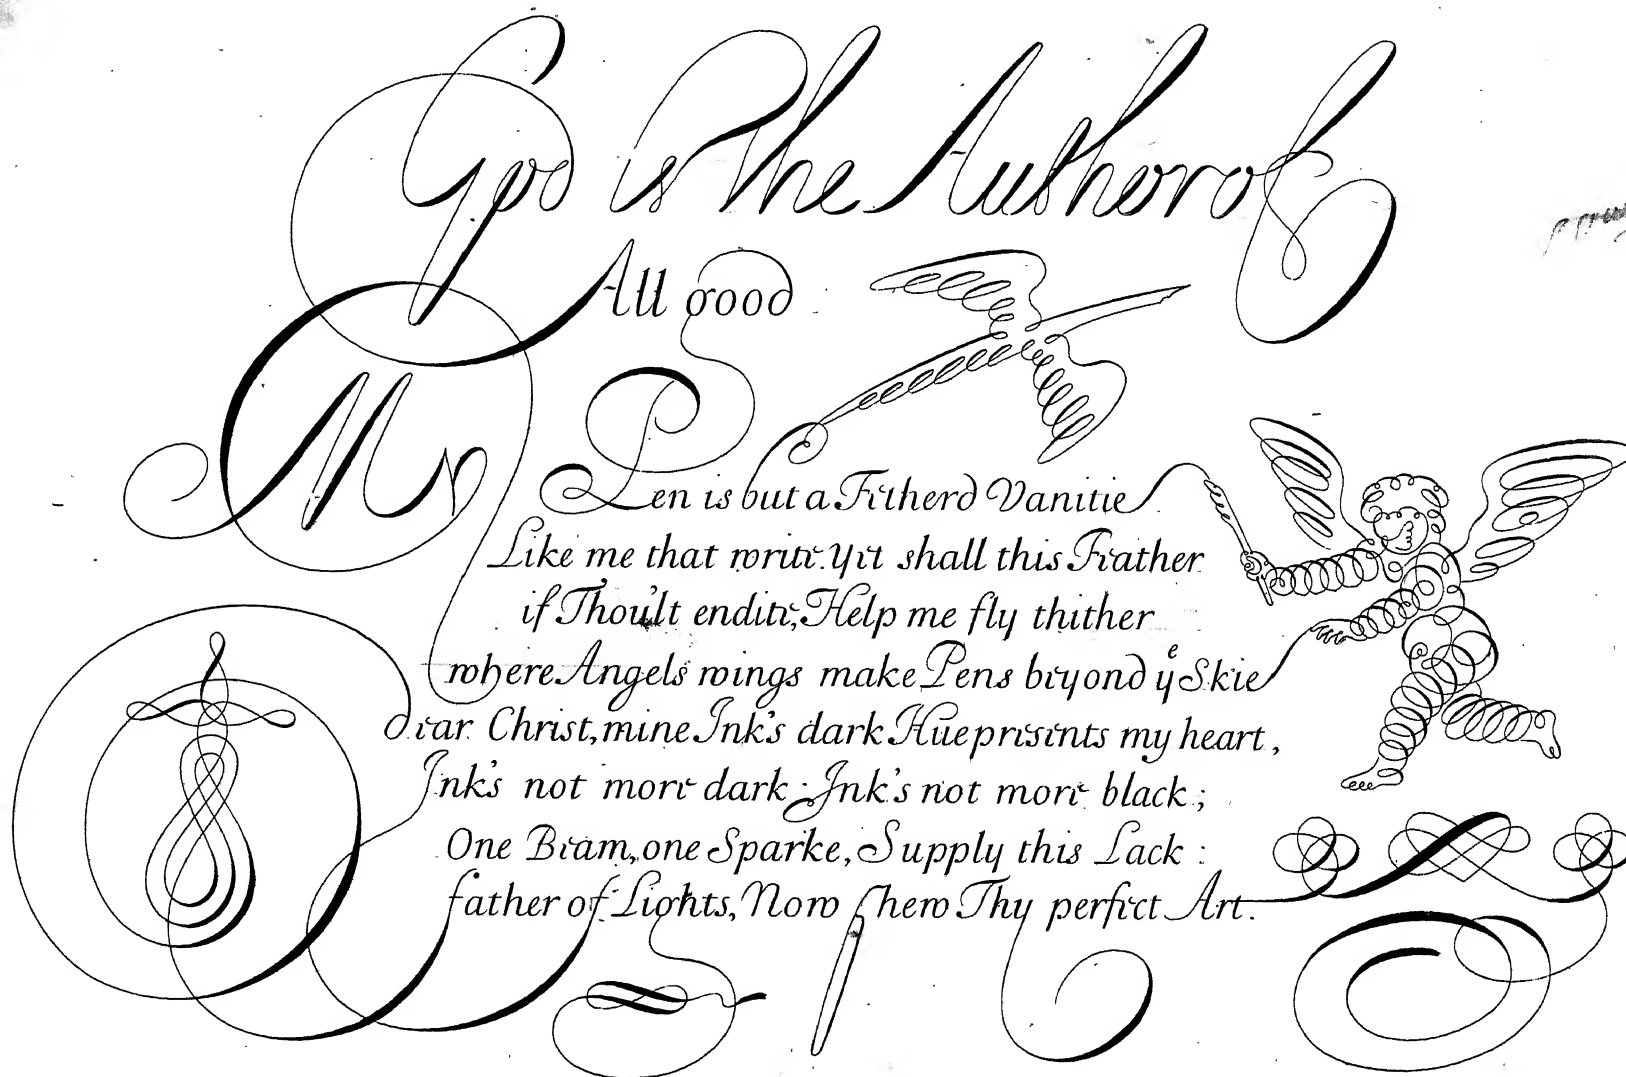 God is The Author of
All good
My
Pen is but a Fetherd Vanitie
Like me that write. Yet shall this Feather
if Thou'lt endite, Help me fly thither
where Angels wings make Pens beyond yͤ Skie
Dear Christ, mine Ink's dark Hue presents my heart,
Ink's not more dark; Ink's not more black;
One Beam, one Sparke, Supply this Lack:
father of Lights, Now Shew Thy perfect Art.